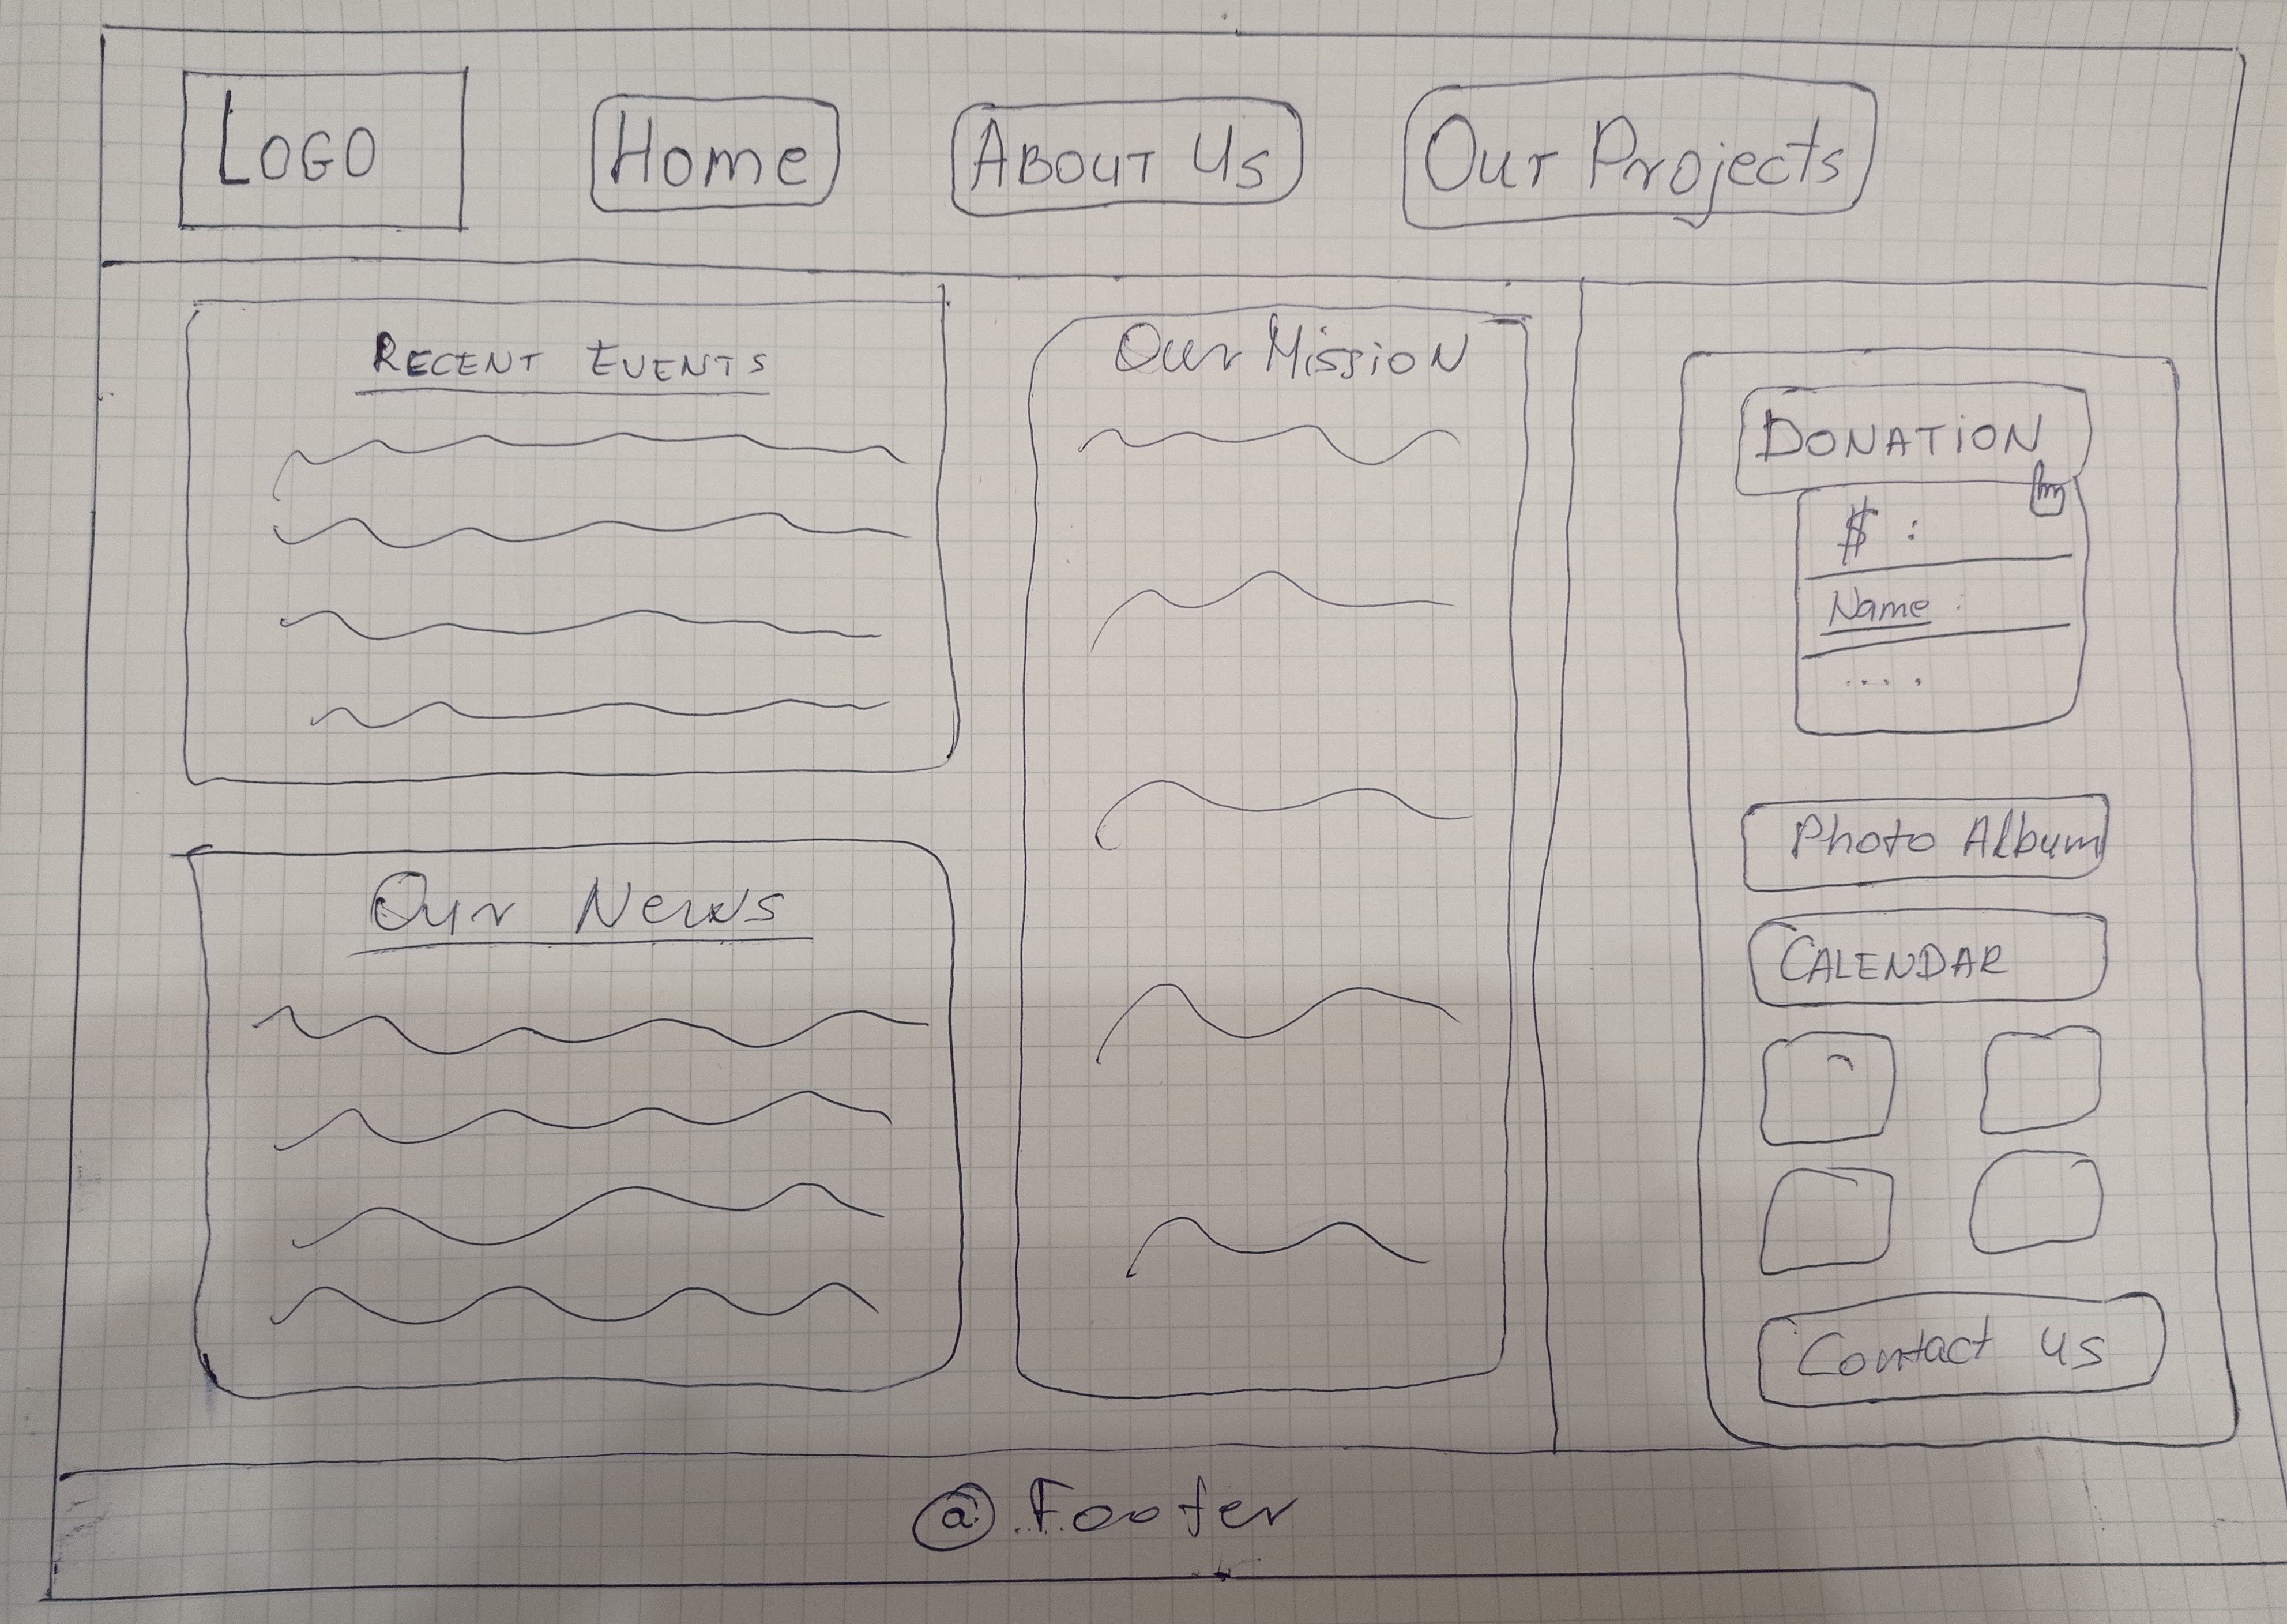 LOGO
Home
ABOUT US
Our Projects
RECENT EVENTS
Our News
Our Mission
DONATION
$ :
Name :
....
Photo Album
CALENDAR
Contact us
@ Footer